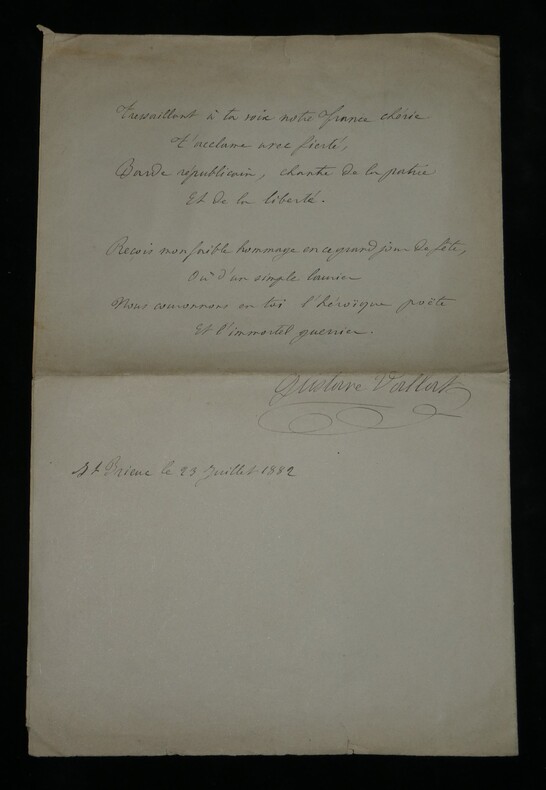 Tressaillant à ta voix notre France chérie
T'acclame avec fierté,
Barde républicain, chante de la patrie
Et de la liberté.
Reçois mon faible hommage en ce grand jour de fête,
Où d'un simple laurier
Nous couronnons en toi l'héroïque poète
Et l'immortel guerrier.
Gustave Vallat
St Brieuc le 23 Juillet 1882